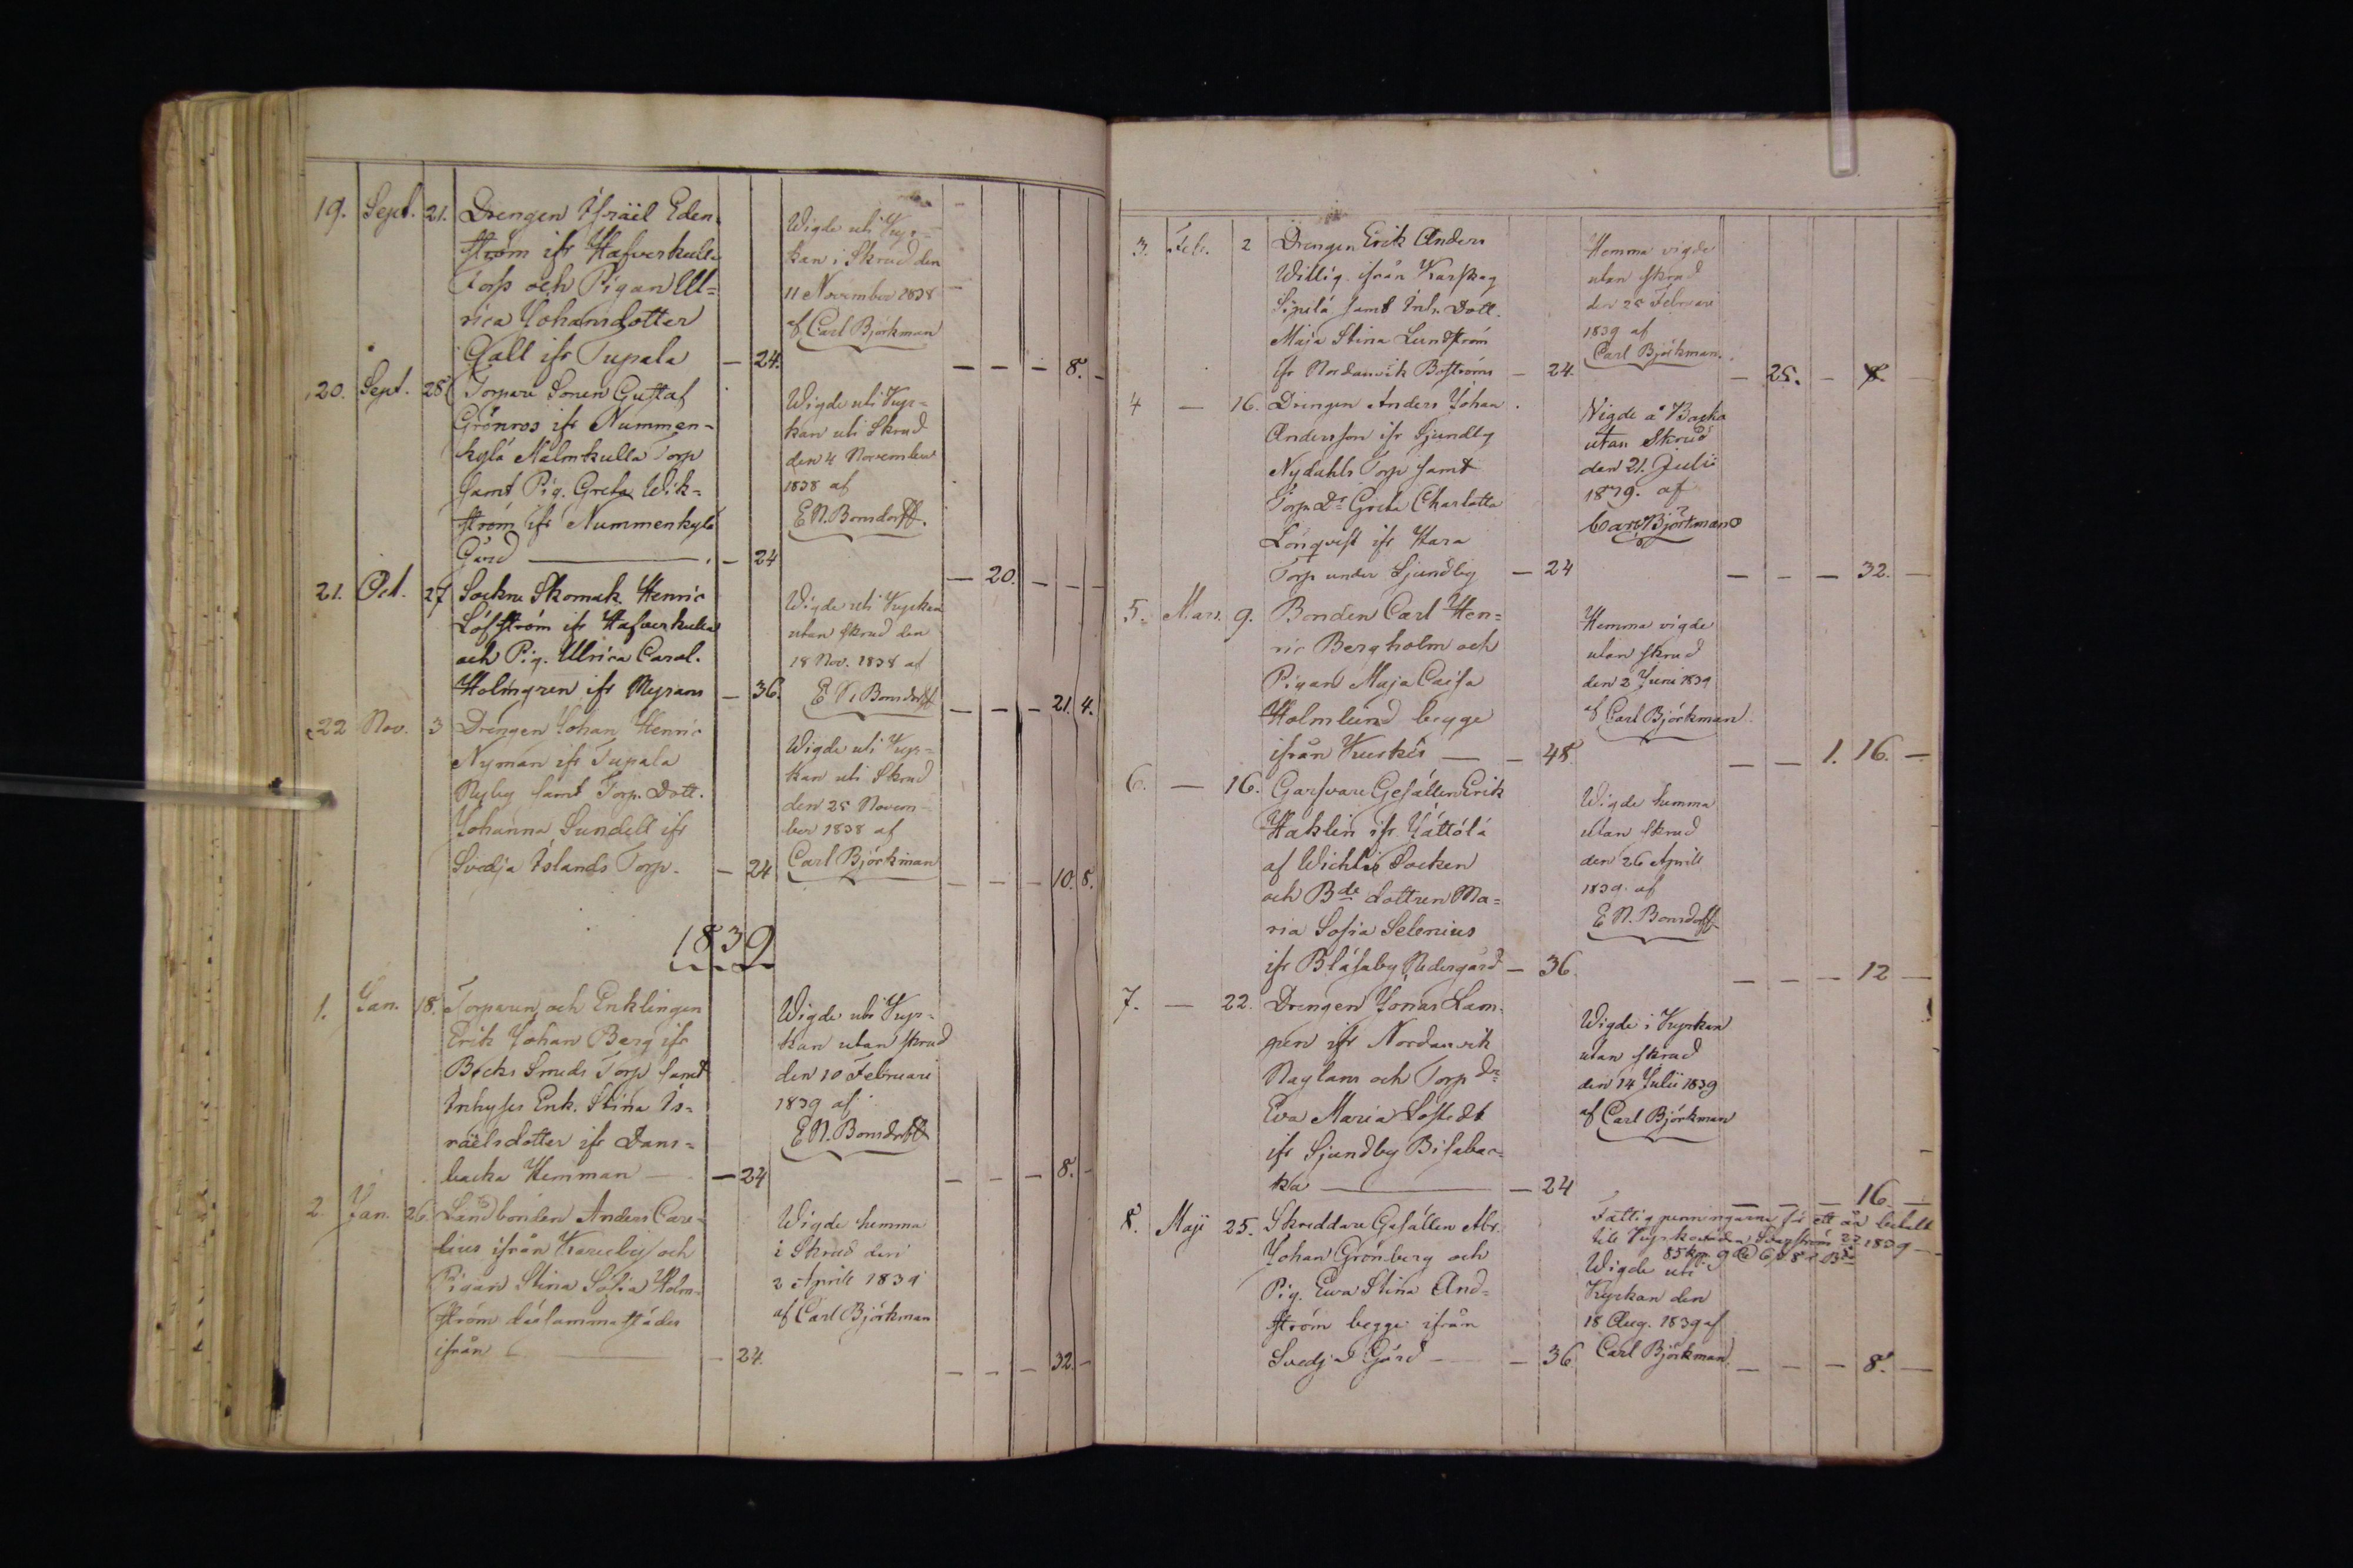 19. Sept. 21. Drengen Israël Eden-
ström ifr Hafverkulla
torp och Pigan Ul=
rica Johansdotter
Gall ifr Tupala — 24.
Wigde uti Kyr=
kan i Skrud den
11 November 1838
af Carl Björkman
— — — 8. —
20. Sept. 28 Torpare Sonen Gustaf
Grönros ifr Nummen-
kylä Malmkulla Torp
samt Pig. Greta Wik=
ström ifr Nummenkylä
Gård — 24
Wigde uti Kyr=
kan uti Skrud
den 4 November
1838 af
E N. Bonsdorff.
— 20. — — —
21. Oct. 27 Sockne Skomak. Henric
Löfström ifr Hafverkulla
och Pig. Ulrica Carol.
Holmgren ifr Myrans — 36.
Wigde uti Kyrkan
utan skrud den
18 Nov. 1838 af
E N. Bonsdorff
— — — 21. 4.
22 Nov. 3 Drengen Johan Henric
Nyman ifr Tupala
Nyby samt Torp. Dott.
Johanna Sundell ifr
Svedja Islands Torp. — 24
Wigde uti Kyr=
kan uti Skrud
den 25 Novem-
ber 1838 af
Carl Björkman
— — — 10. 8.
1839
1. Jan. 18. Torparen och Enklingen
Erik Johan Berg ifr
Böcks Smeds Torp samt
Inhyses Enk. Stina Is=
raëlsdotter ifr Dans=
backa Hemman — 24
Wigde uti Kyr=
kan utan skrud
den 10 Februari
1839 af
E N. Bonsdorff
— — — 8. —
2. Jan. 26. Landbonden Anders Care-
lius ifrån Karuby och
Pigan Stina Sofia Holm-
ström därsammastädes
ifrån — 24.
Wigde hemma
i Skrud den
2 Aprill 1839
af Carl Björkman
— — — 32. —
3. Feb. 2 Drengen Erik Anders
Willig ifrån Karskog
Sipilä samt Inh. Dott.
Maja Stina Lundström
ifr Nordanvik Boströms — 24.
Hemma vigde
utan skrud
den 25 Februari
1839 af
Carl Björkman.
— 25. — 8. —
4 — 16. Drengen Anders Johan
Andersson ifr Sjundby
Nydahls Torp samt
Torp. Dr Greta Charlotta
Lönqvist ifr Hara
Torp under Sjundby — 24
Wigde å Backa
utan Skrud
den 21. Julii
1839. af
Carl Björkman
— — — 32. —
5. Mars. 9. Bonden Carl Hen=
ric Bergholm och
Pigan Maja Caisa
Holmlund begge
ifrån Kuskis — 48.
Hemma vigde
utan skrud
den 2 Juni 1839
af Carl Björkman
— — 1. 16. —
6. — 16. Garfvare Gesällen Erik
Haklin ifr Jättölä
af Wichtis Socken
och Bde dottren Ma=
ria Sofia Selenius
ifr Blåsaby Nedergård — 36
Wigde hemma
utan skrud
den 26 Aprill
1839. af
E N. Bonsdorff
— — — 12 —
7. — 22. Drengen Jonas Lam-
pen ifr Nordanvik
Naglans och Torp Dr
Eva Maria Löfstedt
ifr Sjundby Bisabac-
ka — 24
Wigde i Kyrkan
utan skrud
den 14 Julii 1839
af Carl Björkman
— — — 16. —
8. Maji 25. Skreddare Gesällen Abr.
Johan Grönberg och
Pig. Ewa Stina And=
ström begge ifrån
Svedja Gård — 36
Fattigpenningarna för ett år betalt
till Kyrkovärden 1839 —
Wigde uti
Kyrkan den
18 Aug. 1839 af
Carl Björkman
— — — 8. —